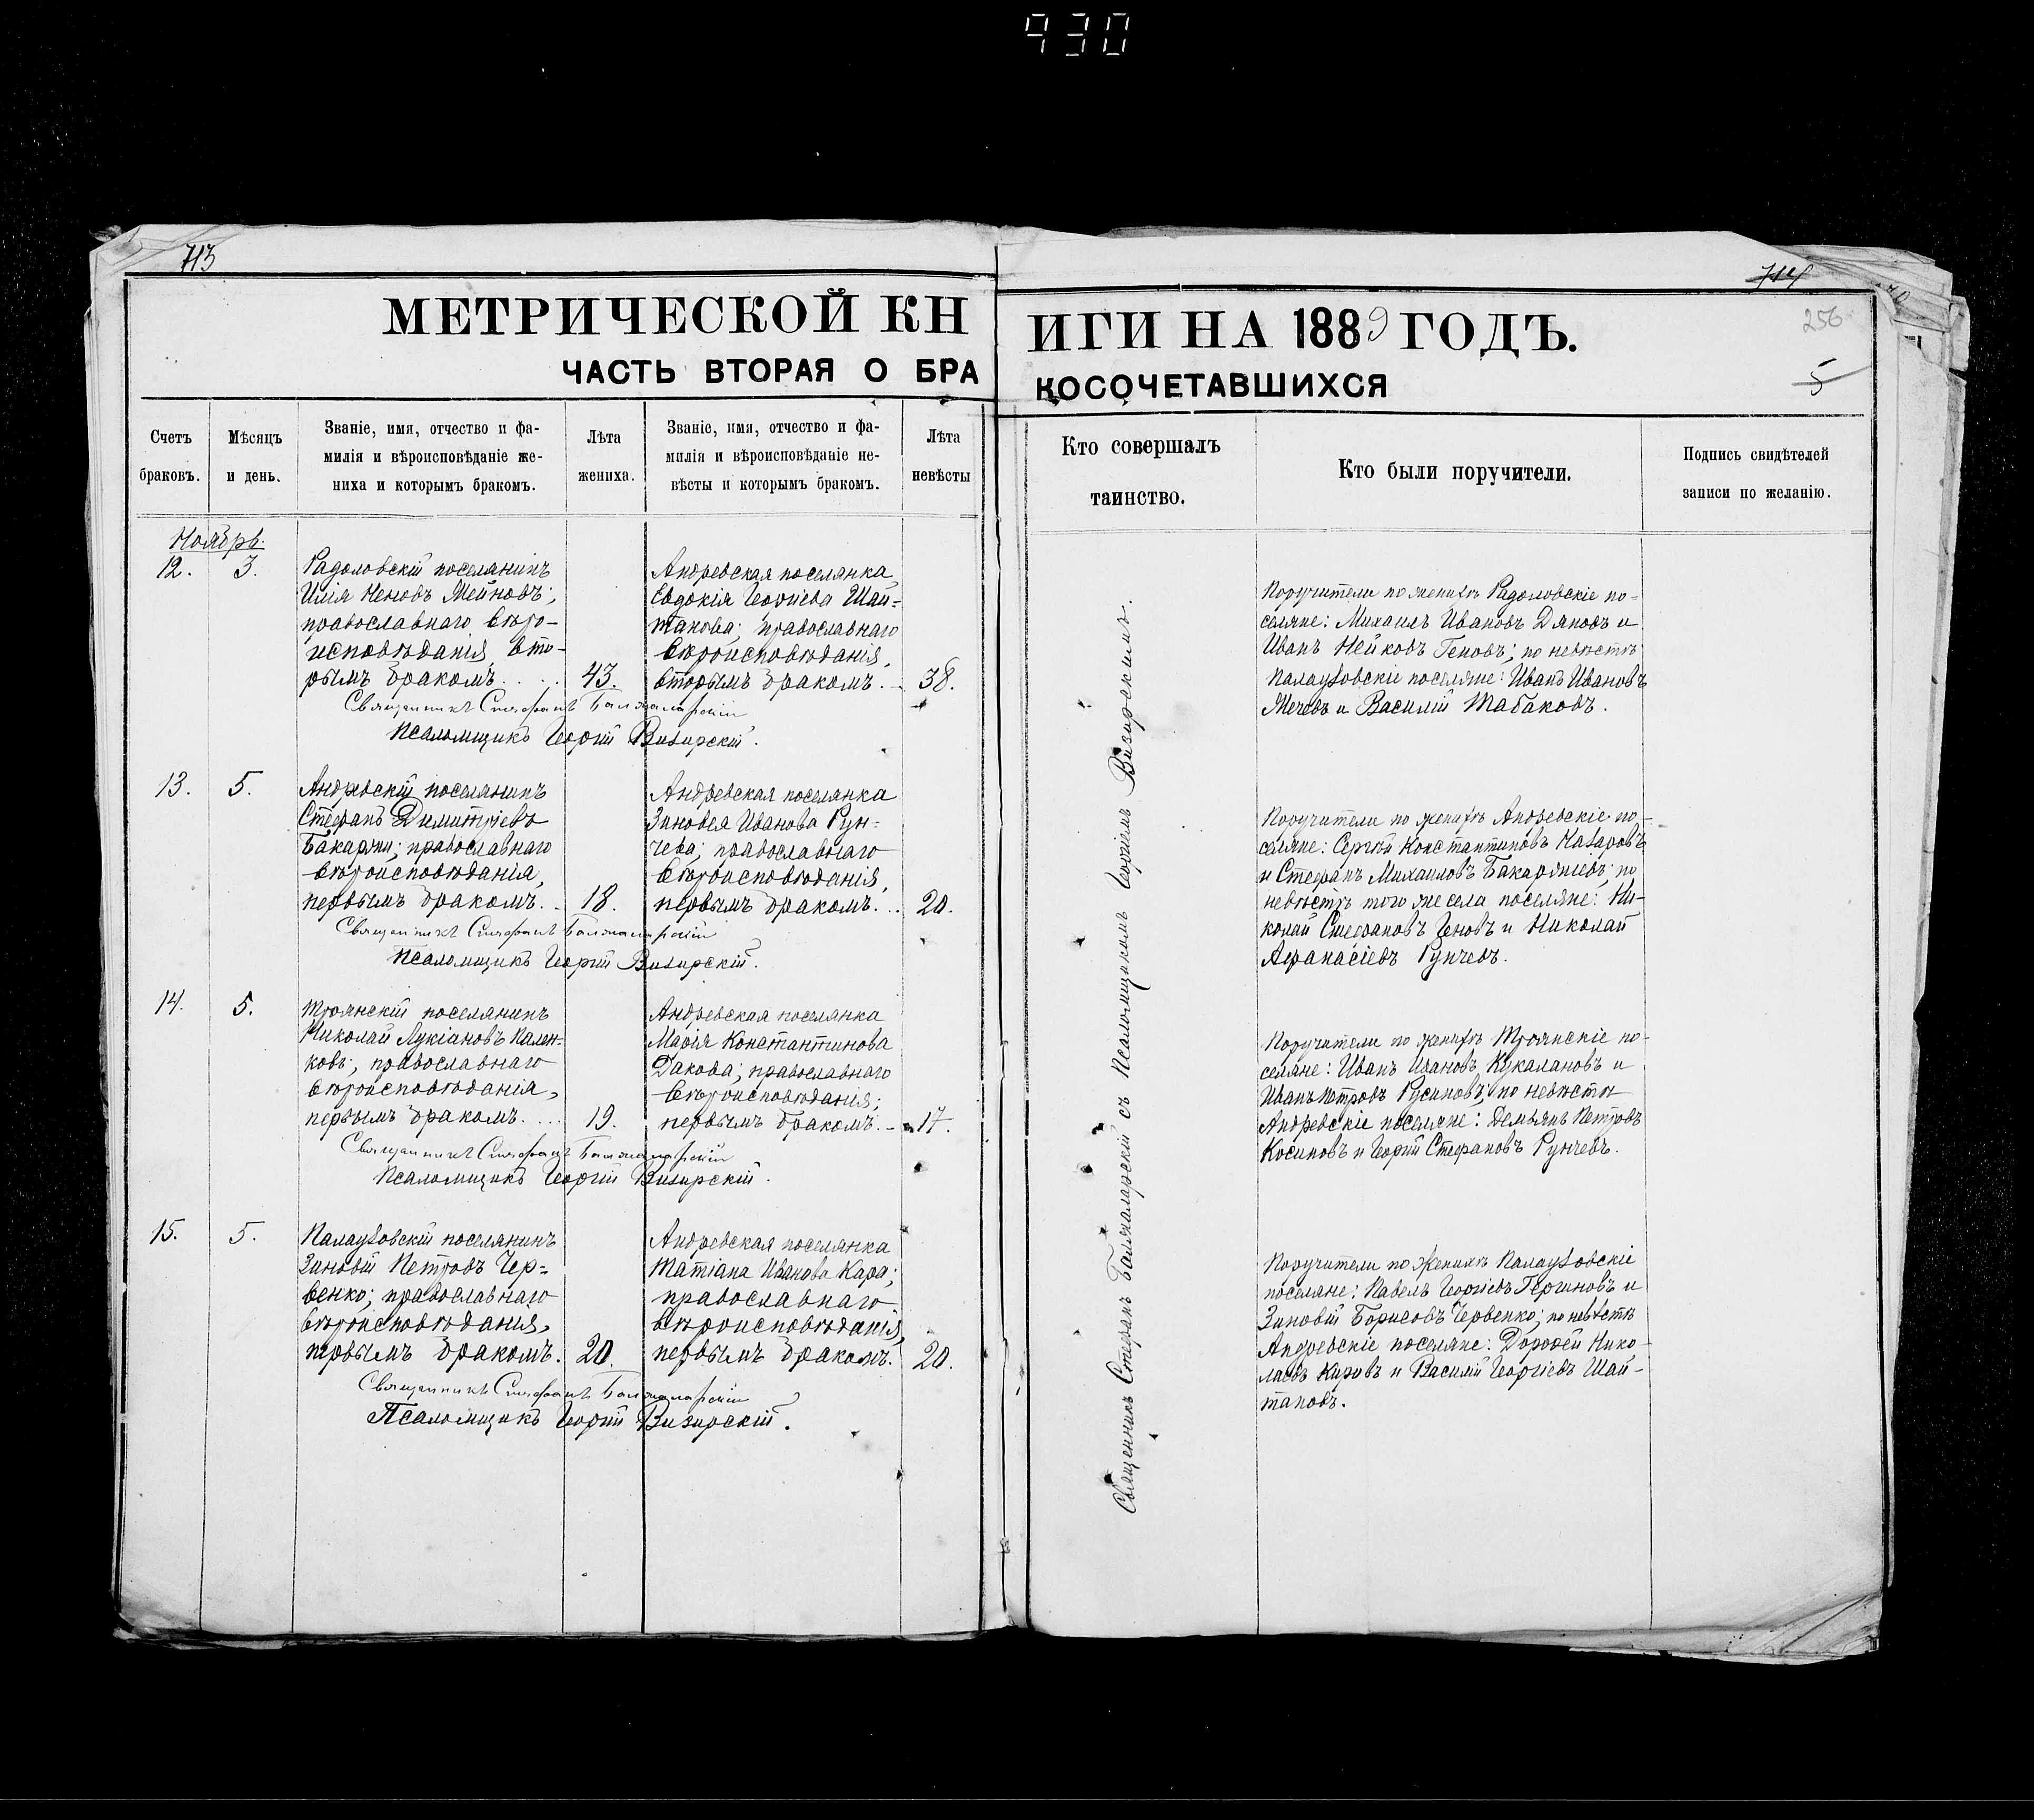 930
713
714
256
5
МЕТРИЧЕСКОЙ КНИГИ НА 1889 ГОДЪ.
ЧАСТЬ ВТОРАЯ О БРАКОСОЧЕТАВШИХСЯ
Счетъ
браковъ.
Мѣсяцъ
и день.
Званіе, имя, отчество и фа-
милія и вѣроисповѣданіе же-
ниха и которымъ бракомъ.
Лѣта
жениха.
Званіе, имя, отчество и фа-
милія и вѣроисповѣданіе не-
вѣсты и которымъ бракомъ.
Лѣта
невѣсты
Кто совершалъ
таинство.
Кто были поручители.
Подпись свидѣтелей
записи по желанію.
Ноябрь.
12. 3.
Радоловскій поселянинъ
Илія Неновъ Мейновъ;
православнаго вѣро-
исповѣданія, вто-
рымъ бракомъ. . . . 43.
Андреевская поселянка
Евдокія Георгіева Шай-
танова; православнаго
вѣроисповѣданія,
вторымъ бракомъ. 38.
Священникъ Стефанъ Балжаларскій
Псаломщикъ Георгій Визирскій.
Поручители по женихѣ Радоловскіе по-
селяне: Михаилъ Ивановъ Дяновъ и
Иванъ Нейковъ Геновъ; по невѣстѣ
Палаузовскіе поселяне: Иванъ Ивановъ
Мечевъ и Василій Табаковъ.
13. 5.
Андреевскій поселянинъ
Стефанъ Димитріевъ
православнаго
вѣроисповѣданія,
первымъ бракомъ. . 18.
Андреевская поселянка
Зиновея Иванова Рун-
чева; православнаго
вѣроисповѣданія,
первымъ бракомъ. . . 20.
Священникъ Стефанъ Балжаларскій
Псаломщикъ Георгій Визирскій.
Поручители по женихѣ Андреевскіе по-
селяне: Сергѣй Константиновъ Назаровъ
и Стефанъ Михаиловъ по
невѣстѣ того же села поселяне: Ни-
колай Стефановъ Геновъ и Николай
Афанасіевъ Рунчевъ.
14. 5.
Троянскій поселянинъ
Николай Лукіановъ Пален-
ковъ; православнаго
вѣроисповѣданія,
первымъ бракомъ. . . . 19.
Андреевская поселянка
Марія Константинова
Дакова; православнаго
вѣроисповѣданія;
первымъ бракомъ. 17.
Священникъ Стефанъ Балжаларскій
Псаломщикъ Георгій Визирскій.
Поручители по женихѣ Троянскіе по-
селяне: Иванъ Ивановъ Кукалановъ и
Иванъ Петровъ Русиновъ; по невѣстѣ
Андреевскіе поселяне: Демьянъ Петровъ
Косиновъ и Георгій Стефановъ Рунчевъ.
15. 5.
Палаузовскій поселянинъ
Зиновій Петровъ Чер-
венко; православнаго
вѣроисповѣданія,
первымъ бракомъ. 20.
Андреевская поселянка
Татіана Иванова Кара;
православнаго
вѣроисповѣданія,
первымъ бракомъ. 20.
Священникъ Стефанъ Балжаларскій
Псаломщикъ Георгій Визирскій.
Поручители по женихѣ Палаузовскіе
поселяне: Павелъ Георгіевъ Гергиновъ и
Зиновій Борисовъ Червенко; по невѣстѣ
Андреевскіе поселяне: Дорофей Нико-
лаевъ Кировъ и Василій Георгіевъ Шай-
тановъ.
Священникъ Стефанъ Балжаларскій съ Псаломщикомъ Георгіемъ Визирскимъ.